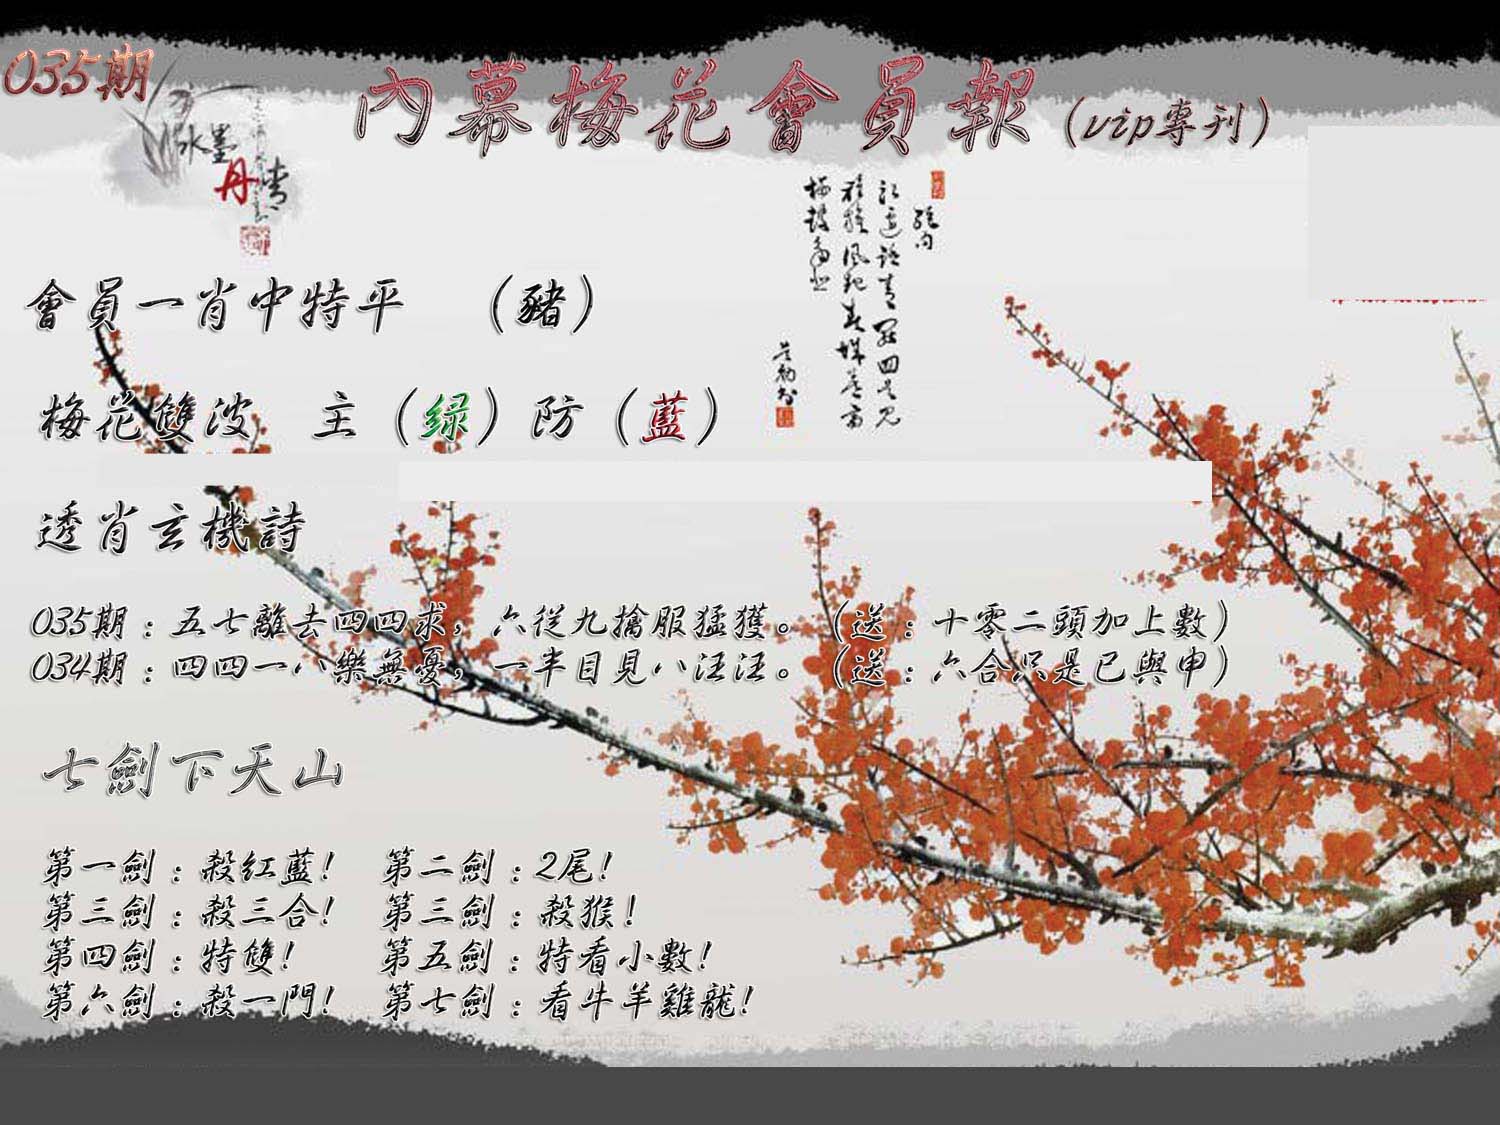 035期
內幕梅花會員報（vip專刊）
水墨
丹青
會員一肖中特平　（豬）
梅花雙波　主（绿）防（藍）
透肖玄機詩
035期：五七離去四四求，六從九擒服猛獲。（送：十零二頭加上數）
034期：四四一八樂無憂，一半目見八汪汪。（送：六合只是已與申）
七劍下天山
第一劍：殺紅藍！　第二劍：2尾！
第三劍：殺三合！　第三劍：殺猴！
第四劍：特雙！　第五劍：特看小數！
第六劍：殺一門！　第七劍：看牛羊雞龍！